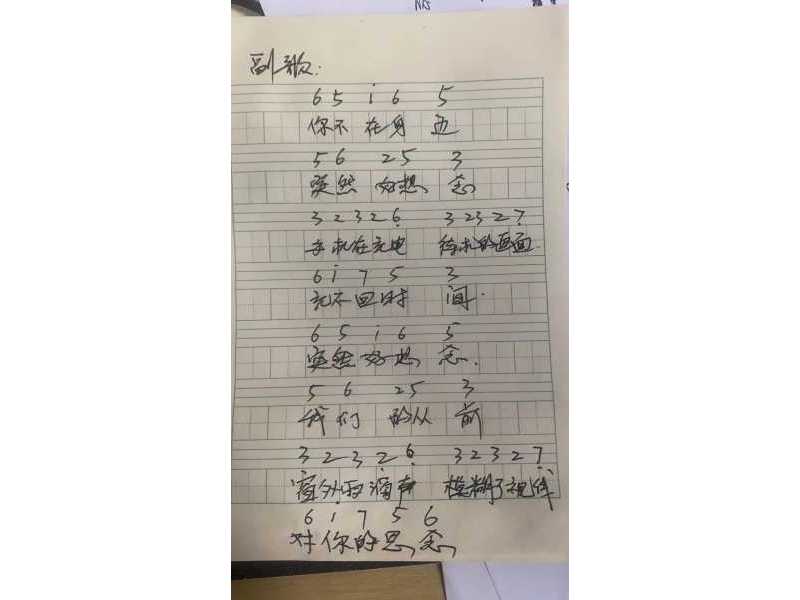 副歌:
6 5 i 6 5
你不在身边
5 6 2 5 3
突然好想念
3 2 3 2 6 3 2 3 2 7
手机在充电 待机的画面
6 i 7 5 3
充不回时间.
6 5 i 6 5
突然好想念.
5 6 2 5 3
我们的从前
3 2 3 2 6 3 2 3 2 7
窗外雨滴声 模糊了视线
6 i 7 5 6
对你的思念